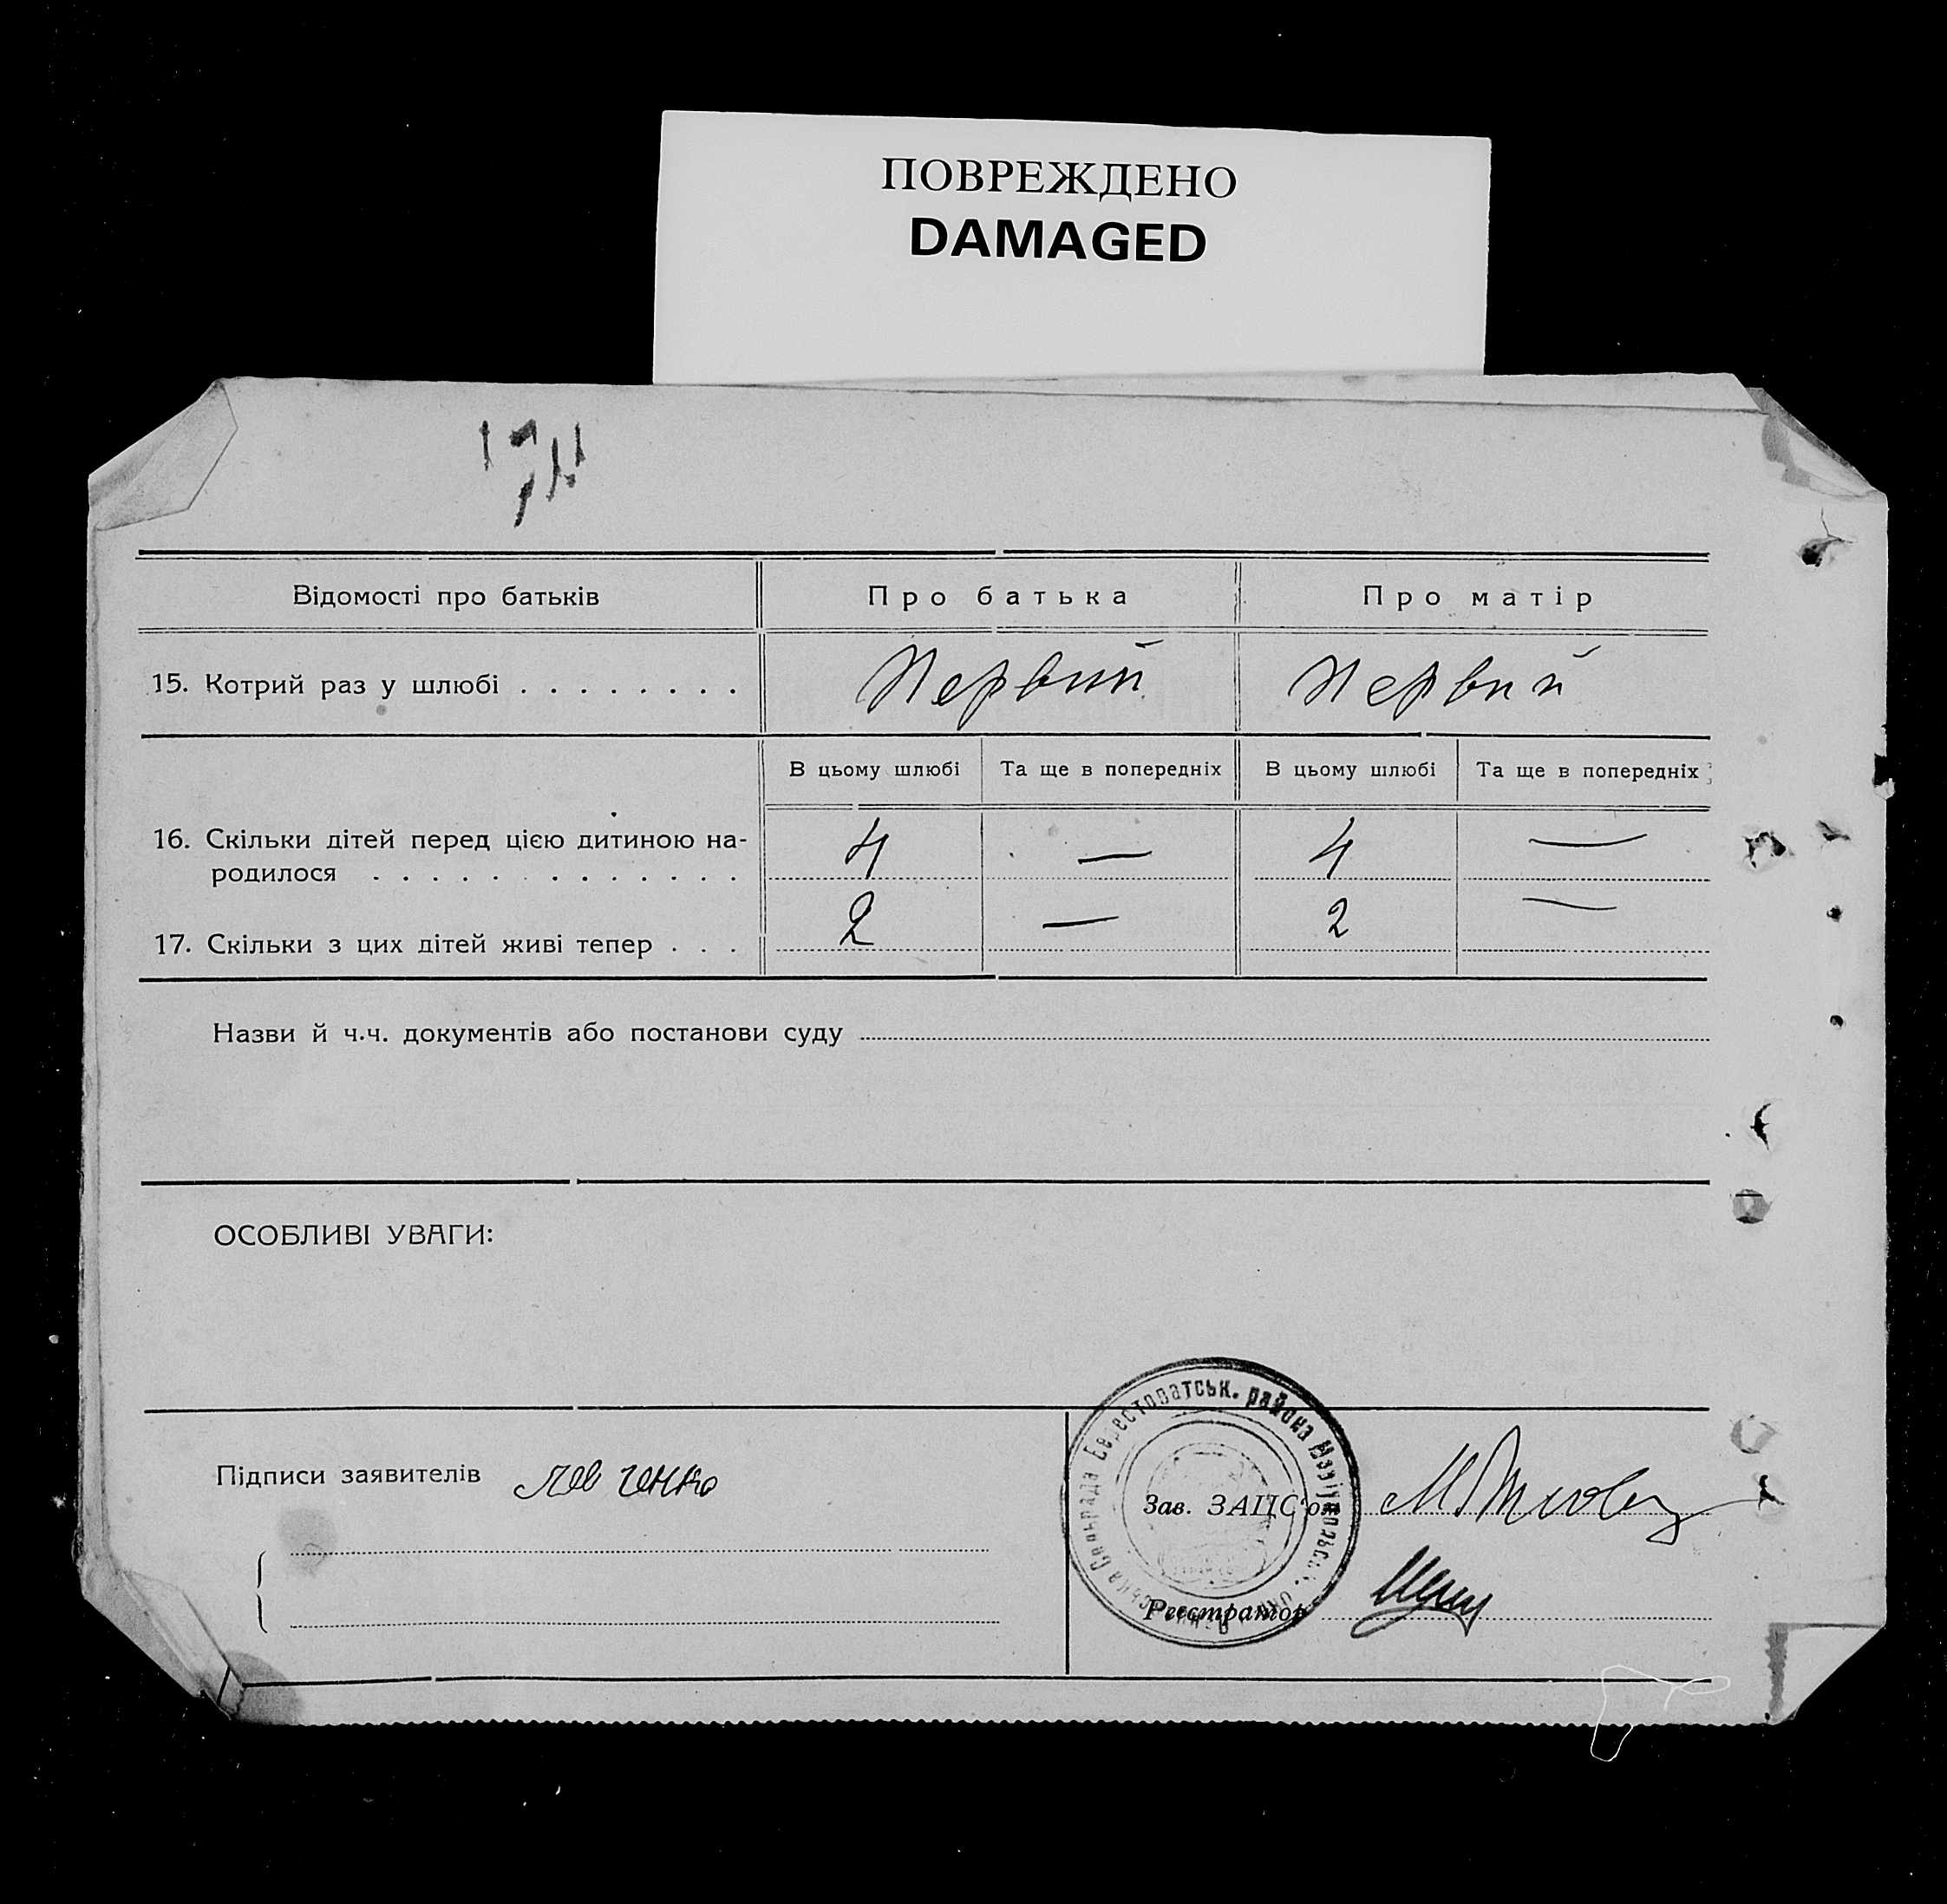 ПОВРЕЖДЕНО
DAMAGED
Відомості про батьків Про батька Про матір
15. Котрий раз у шлюбі . . . . . . . . Первий Первий
В цьому шлюбі Та ще в попередніх В цьому шлюбі Та ще в попередніх
16. Скільки дітей перед цією дитиною на-
родилося . . . . . . . . . . . . . 4 — 4 —
17. Скільки з цих дітей живі тепер . . . 2 — 2 —
Назви й ч.ч. документів або постанови суду
ОСОБЛИВІ УВАГИ:
Підписи заявителів Левченко
Зав. ЗАЦС'ом
Реєстратор
района